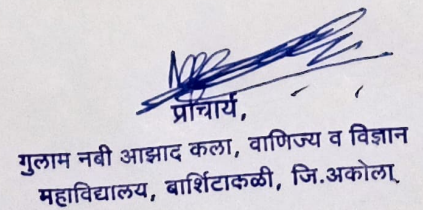 प्राचार्य,
गुलाम नबी आझाद कला, वाणिज्य व विज्ञान
महाविद्यालय, बार्शिटाकळी, जि.अकोला.